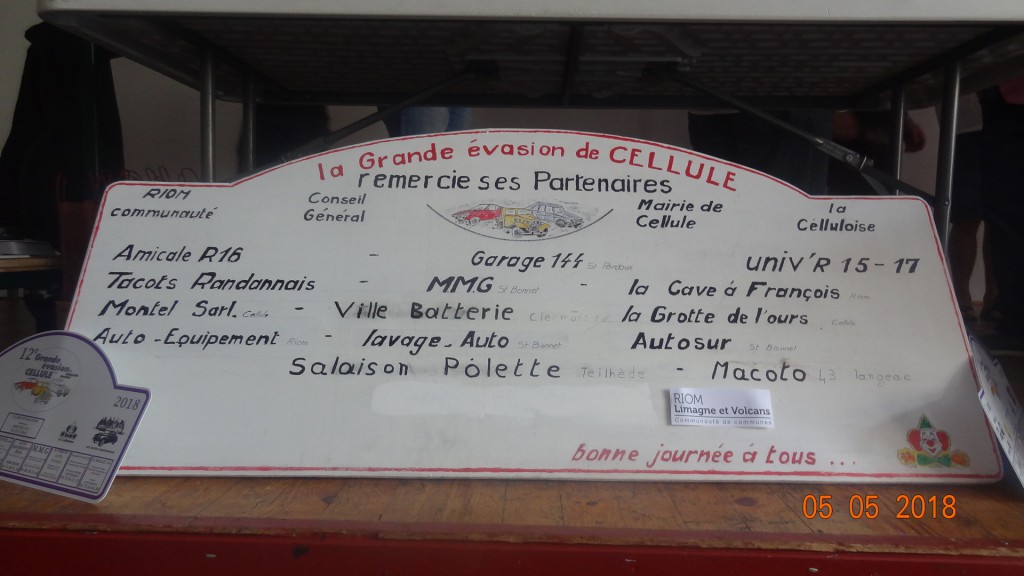 la Grande évasion de CELLULE
remercie ses Partenaires
RIOM communauté
Conseil Général
Mairie de Cellule
la Celluloise
Amicale R16 - Garage 144 St Pardoux univ'R 15-17
Tacots Randannais - MMG St Bonnet - la Cave à François Riom
Montel Sarl. Cellule - Ville Batterie la Grotte de l'ours Cellule
Auto-Equipement Riom - lavage-Auto St Bonnet Autosur St Bonnet
Salaison Pôlette Teilhède - Macoto 43 langeac
RIOM
Limagne et Volcans
Communauté de communes
bonne journée à tous ...
12e Grande
évasion
CELLULE
2018
05 05 2018